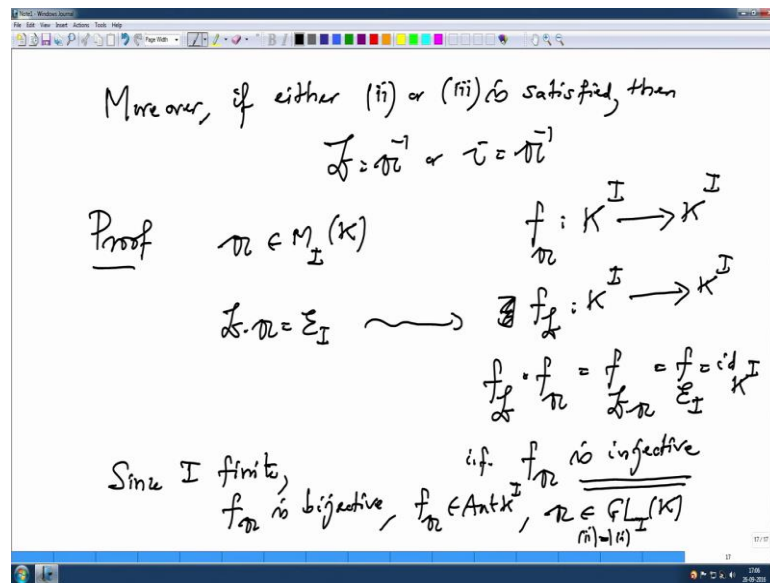 Note1 - Windows Journal
File Edit View Insert Actions Tools Help
Page Width
B I
Moreover, if either (ii) or (iii) is satisfied, then
𝔏 = 𝔄⁻¹ or τ = 𝔄⁻¹
Proof 𝔄 ∈ M_I(K) f_𝔄 : K^I → K^I
𝔏·𝔄 = ℰ_I ⟿ f_𝔏 : K^I → K^I
f_𝔏 · f_𝔄 = f_𝔏·𝔄 = f_ℰ_I = id_K^I
i.f. f_𝔄 is injective
Since I finite,
f_𝔄 is bijective, f_𝔄 ∈ Aut K^I, 𝔄 ∈ GL_I(K)
(ii) ⇒ (i)
17/17
17
17:06
26-09-2016